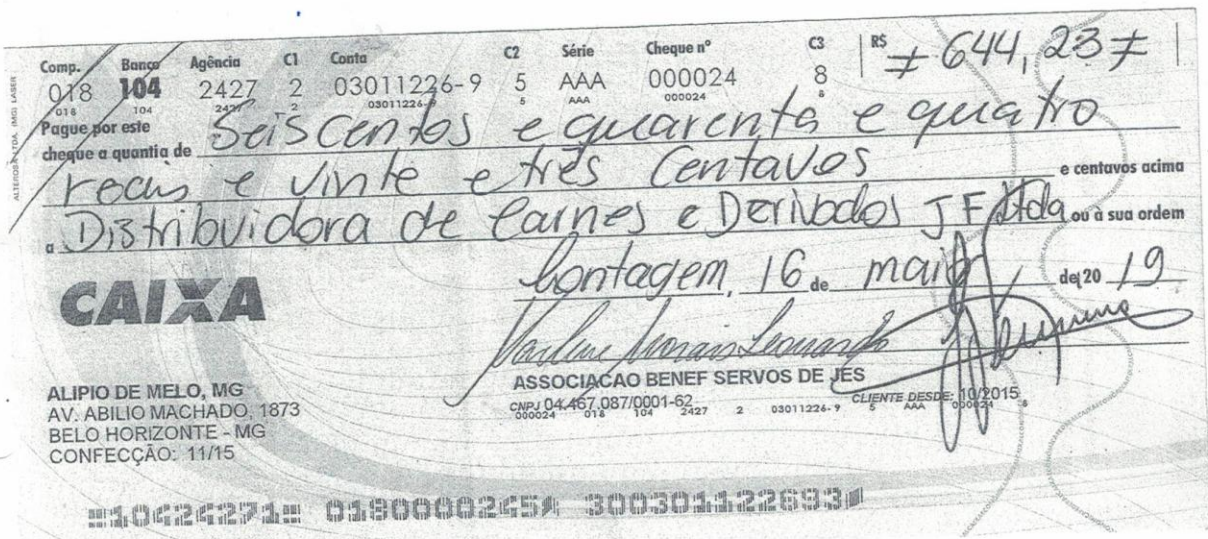 Comp. Banco Agência C1 Conta C2 Série Cheque nº C3 R$ ≠ 644,23 ≠
018 104 2427 2 03011226-9 5 AAA 000024 8
018 104 2427 2 03011226-9 5 AAA 000024 8
Pague por este
cheque a quantia de Seiscentos e quarenta e quatro
reais e vinte e três Centavos e centavos acima
a Distribuidora de Carnes e Derivados JF Ltda ou à sua ordem
Contagem, 16 de maio de 20 19
CAIXA
Marlene Morais Leonardo
ASSOCIACAO BENEF SERVOS DE JES
CNPJ 04.467.087/0001-62 CLIENTE DESDE: 10/2015
000024 018 104 2427 2 03011226-9 5 AAA 000024 8
ALIPIO DE MELO, MG
AV. ABILIO MACHADO, 1873
BELO HORIZONTE - MG
CONFECÇÃO: 11/15
⑆10424271⑆ 0180000245 300301122693